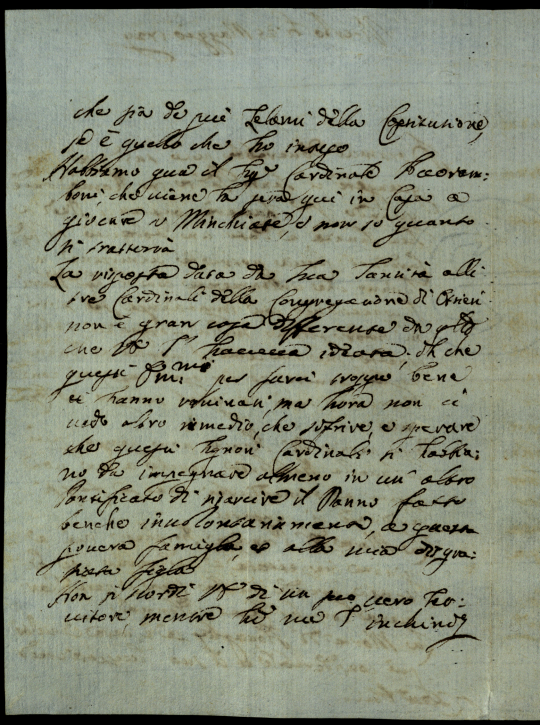 che sia de più Zelanti della Constitutione,
se è quello che ho inteso
Habbiamo quà il Sigr Cardinale Accoram-
boni, che viene la sera qui in Casa a
giocare a Minchiate, e non so quanto
si tratterrà
La risposta data da Sua Santità alli
tre Cardinali della Congregatione di
non è gran cosa differente da
che VS haveva ideata, di che
questi Emmi per farci troppo bene
ci hanno rovinati, ma hora non ci
vedo altro remedio, che soffrire, e sperare
che questi Signori Cardinali si
no da impegnare almeno in un altro
Pontificato di risarcire il Danno fatto
benche involontariamente, a questa
povera famiglia, et alla mia disgra-
tiata figlia
Non si scordi VS di un suo vero Ser-
vitore, mentre